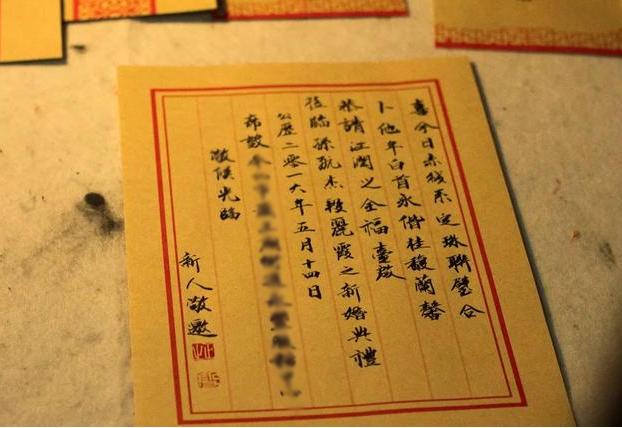 喜今日赤繩系定珠聯璧合
卜他年白首永偕桂馥蘭馨
恭請江闊之全福臺啟
蒞臨孫航杰段麗霞之新婚典禮
公歷二零一六年五月十四日
席設
敬候光臨
新人敬邀